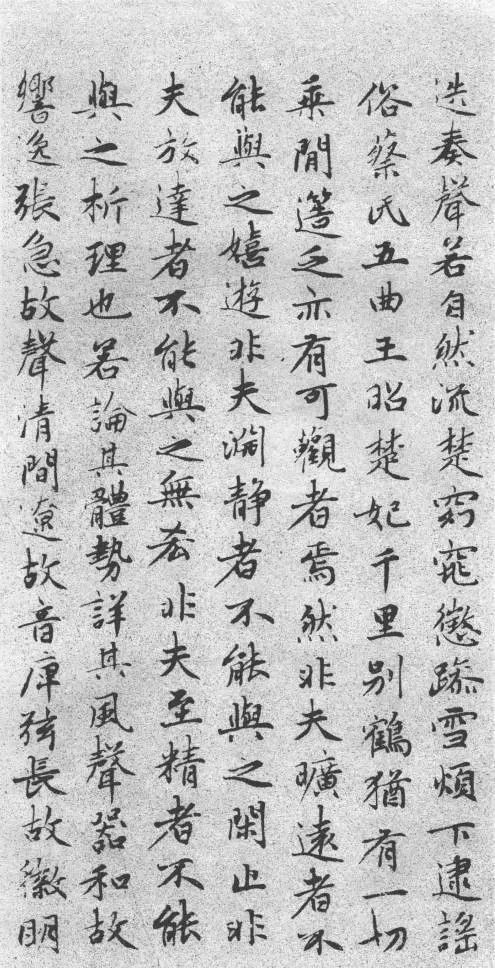 迭奏聲若自然流楚窈窕懲躁雪煩下逮謠
俗蔡氏五曲王昭楚妃千里别鶴猶有一切
乗間簉乏亦有可觀者焉然非夫曠遠者不
能與之嬉遊非夫淵靜者不能與之閑止非
夫放達者不能與之無𠫤非夫至精者不能
與之析理也若論其體勢詳其風聲器和故
響逸張急故聲清間遼故音庳弦長故徽明